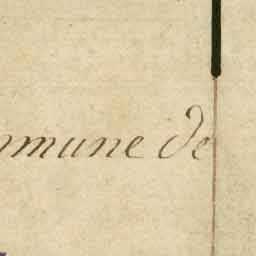 mmune de